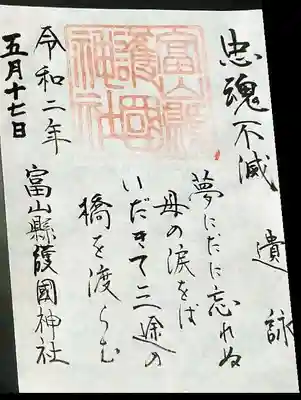 忠魂不滅
遺詠
夢にだに忘れぬ
母の涙をば
いだきて三途の
橋を渡らむ
富山縣護國神社
富山縣護國神社
令和二年
五月十七日